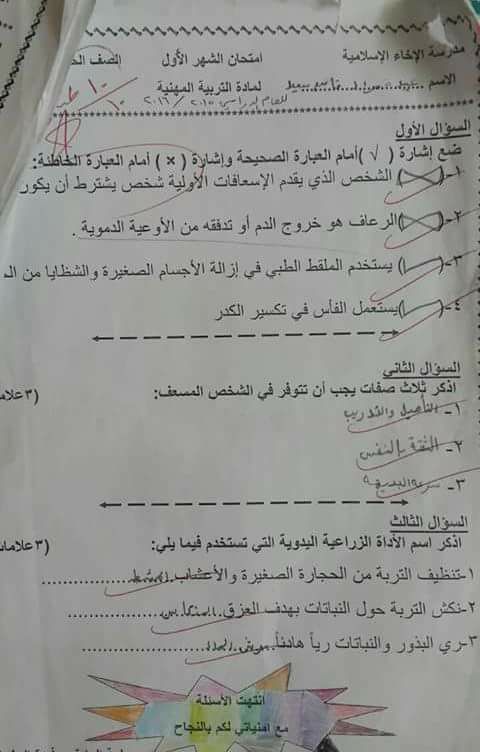 مدرسة الإخاء الإسلامية امتحان الشهر الأول الصف
الاسم لمادة التربية المهنية
للعام الدراسي ٢٠١٥ / ٢٠١٦
١٠
١٠
السؤال الأول
ضع إشارة ( √ )أمام العبارة الصحيحة وإشارة ( × ) أمام العبارة الخاطئة:
١-(×)الشخص الذي يقدم الإسعافات الأولية شخص يشترط أن يكون
٢-(×)الرعاف هو خروج الدم أو تدفقه من الأوعية الدموية .
٣-(√)يستخدم الملقط الطبي في إزالة الأجسام الصغيرة والشظايا من
٤-(√)يستعمل الفأس في تكسير الكدر
السؤال الثاني
اذكر ثلاث صفات يجب أن تتوفر في الشخص المسعف: (٣
١- التأهيل والتدريب
٢- الثقة بالنفس
٣- سرعة البديهة
السؤال الثالث
اذكر اسم الأداة الزراعية اليدوية التي تستخدم فيما يلي: (٣
١-تنظيف التربة من الحجارة الصغيرة والأعشاب المشط
٢-نكش التربة حول النباتات بهدف العزق المنكاش
٣-ري البذور والنباتات رياً هادئاً
انتهت الأسئلة
مع امنياتي لكم بالنجاح